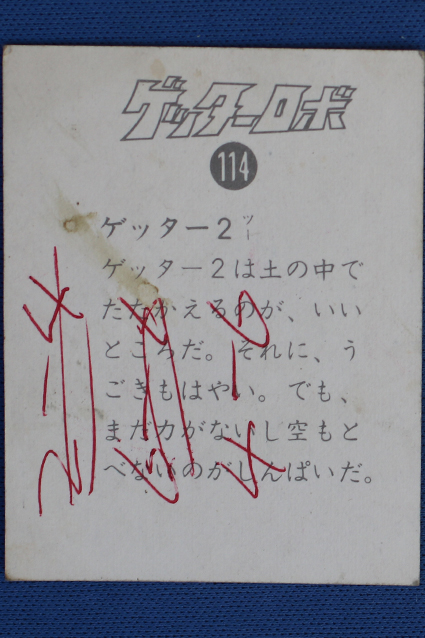 ゲッターロボ
114
ゲッター2ツー
ゲッター2は土の中で
たたかえるのが、いい
ところだ。それに、う
ごきもはやい。でも、
まだ力がないし空もと
べないのがしんぱいだ。